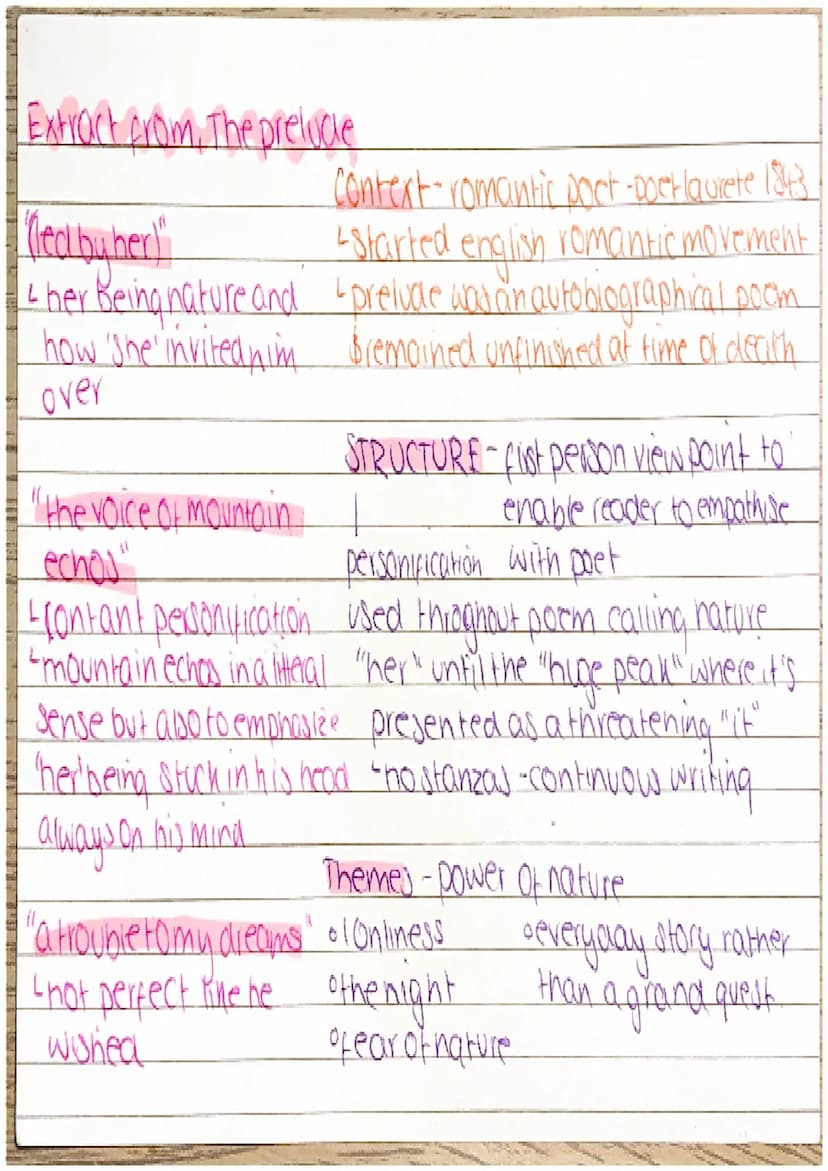 Extract from, The prelude
"(led by her)"
↳ her being nature and
how 'she' invited him
over
"the voice of mountain
echos"
↳ contant personification
↳ mountain echos in a litteal
sense but also to emphasize
'her' being stuck in his head
always on his mind
"a trouble to my dreams"
↳ not perfect like he
wished
Context - romantic poet - poet laurete 1843
↳ started english romantic movement
↳ prelude was an autobiographical poem
& remained unfinished at time of death
STRUCTURE - fist person view point to
enable reader to empathise
personification with poet
used throghout poem calling nature
"her" until the "huge peak" where it's
presented as a threatening "it"
↳ no stanzas - continuous writing
Themes - power of nature
° lonliness
° the night
° fear of nature
° everyday story rather
than a grand quest